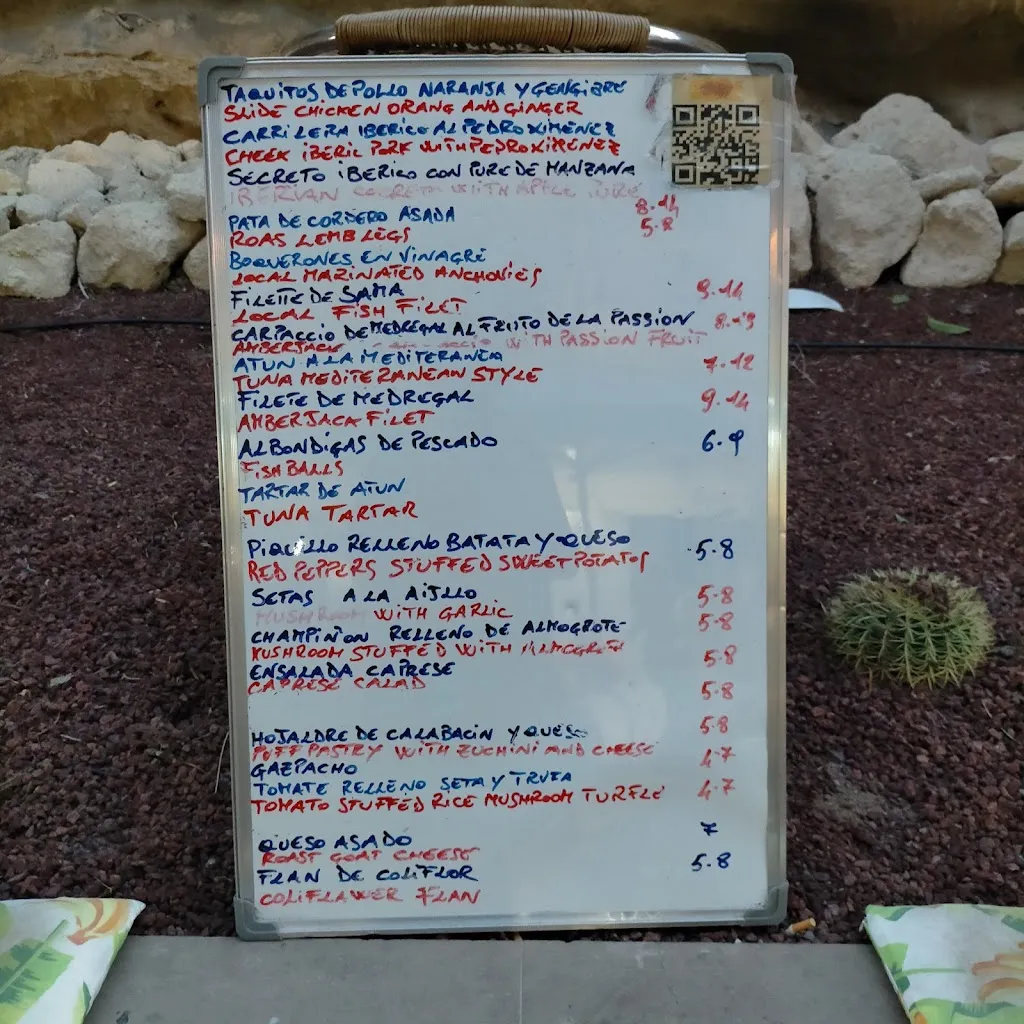 TAQUITOS DE POLLO NARANJA Y GENGIBRE
SLIDE CHICKEN ORANG AND GINGER
CARRILERA IBERICO AL PEDRO XIMENEZ
CHEEK IBERIC PORK WITH PEDRO XIMENEZ
SECRETO IBERICO CON PURE DE MANZANA
IBERIAN SECRETO WITH APPLE PURE
8.14
PATA DE CORDERO ASADA 5.8
ROAS LEMB LEGS
BOQUERONES EN VINAGRE
LOCAL MARINATED ANCHOVIES
FILETTE DE SAMA 9.14
LOCAL FISH FILET
CARPACCIO DE MEDREGAL AL FRUTO DE LA PASSION 8.13
AMBERJACK WITH PASSION FRUIT
ATUN A LA MEDITERANEA 7.12
TUNA MEDITERANEAN STYLE
FILETE DE MEDREGAL 9.14
AMBERJACA FILET
ALBONDIGAS DE PESCADO 6.9
FISH BALLS
TARTAR DE ATUN
TUNA TARTAR
PIQUILLO RELLENO BATATA Y QUESO 5.8
RED PEPPERS STUFFED SWEET POTATOS
SETAS A LA AIJLLO 5.8
MUSHROOM WITH GARLIC
CHAMPIÑON RELLENO DE ALMOGROTE 5.8
MUSHROOM STUFFED WITH ALMOGROTE
ENSALADA CAPRESE 5.8
CAPRESE CALAD 5.8
HOJALDRE DE CALABACIN Y QUESO 5.8
PUFF PASTRY WITH ZUCHINI AND CHEESE
GAZPACHO 4.7
TOMATE RELLENO SETA Y TRUFA
TOMATO STUFFED RICE MUSHROOM TURFLE 4.7
QUESO ASADO 7
ROAST GOAT CHEESE
FLAN DE COLIFLOR 5.8
COLIFLAWER FLAN